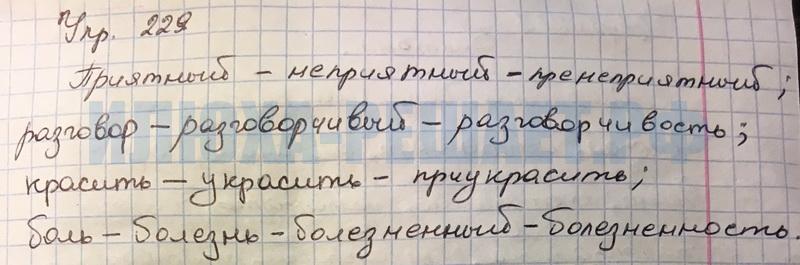 Упр. 229
Приятный – неприятный – пренеприятный;
разговор – разговорчивый – разговорчивость;
ИЛЮХА-РЕШАЕТ.РФ
красить – украсить – приукрасить;
боль – болезнь – болезненный – болезненность.